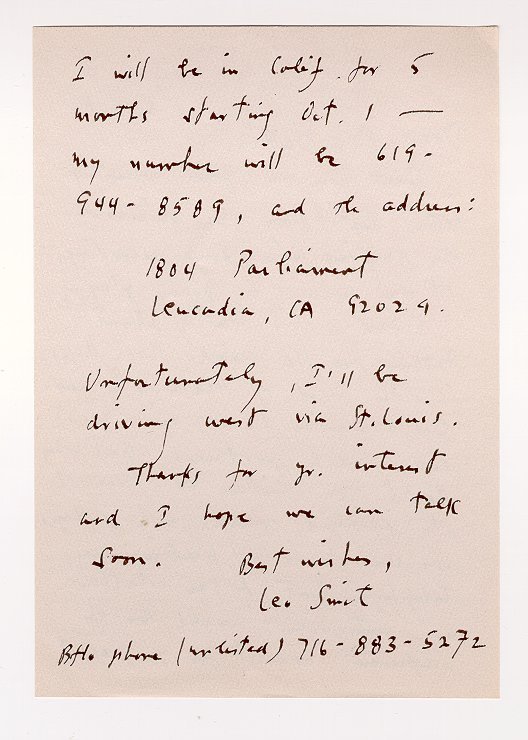 I will be in Calif. for 5
months starting Oct. 1 —
my number will be 619-
944-8589, and the address:
1804 Parliament
Leucadia, CA 92024.
Unfortunately, I'll be
driving west via St. Louis.
Thanks for yr. interest
and I hope we can talk
soon. Best wishes,
Leo Smit
Bflo phone (unlisted) 716-883-5272